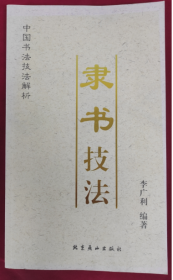 中国书法技法解析
隶书技法
李广利 编著
北京美术出版社